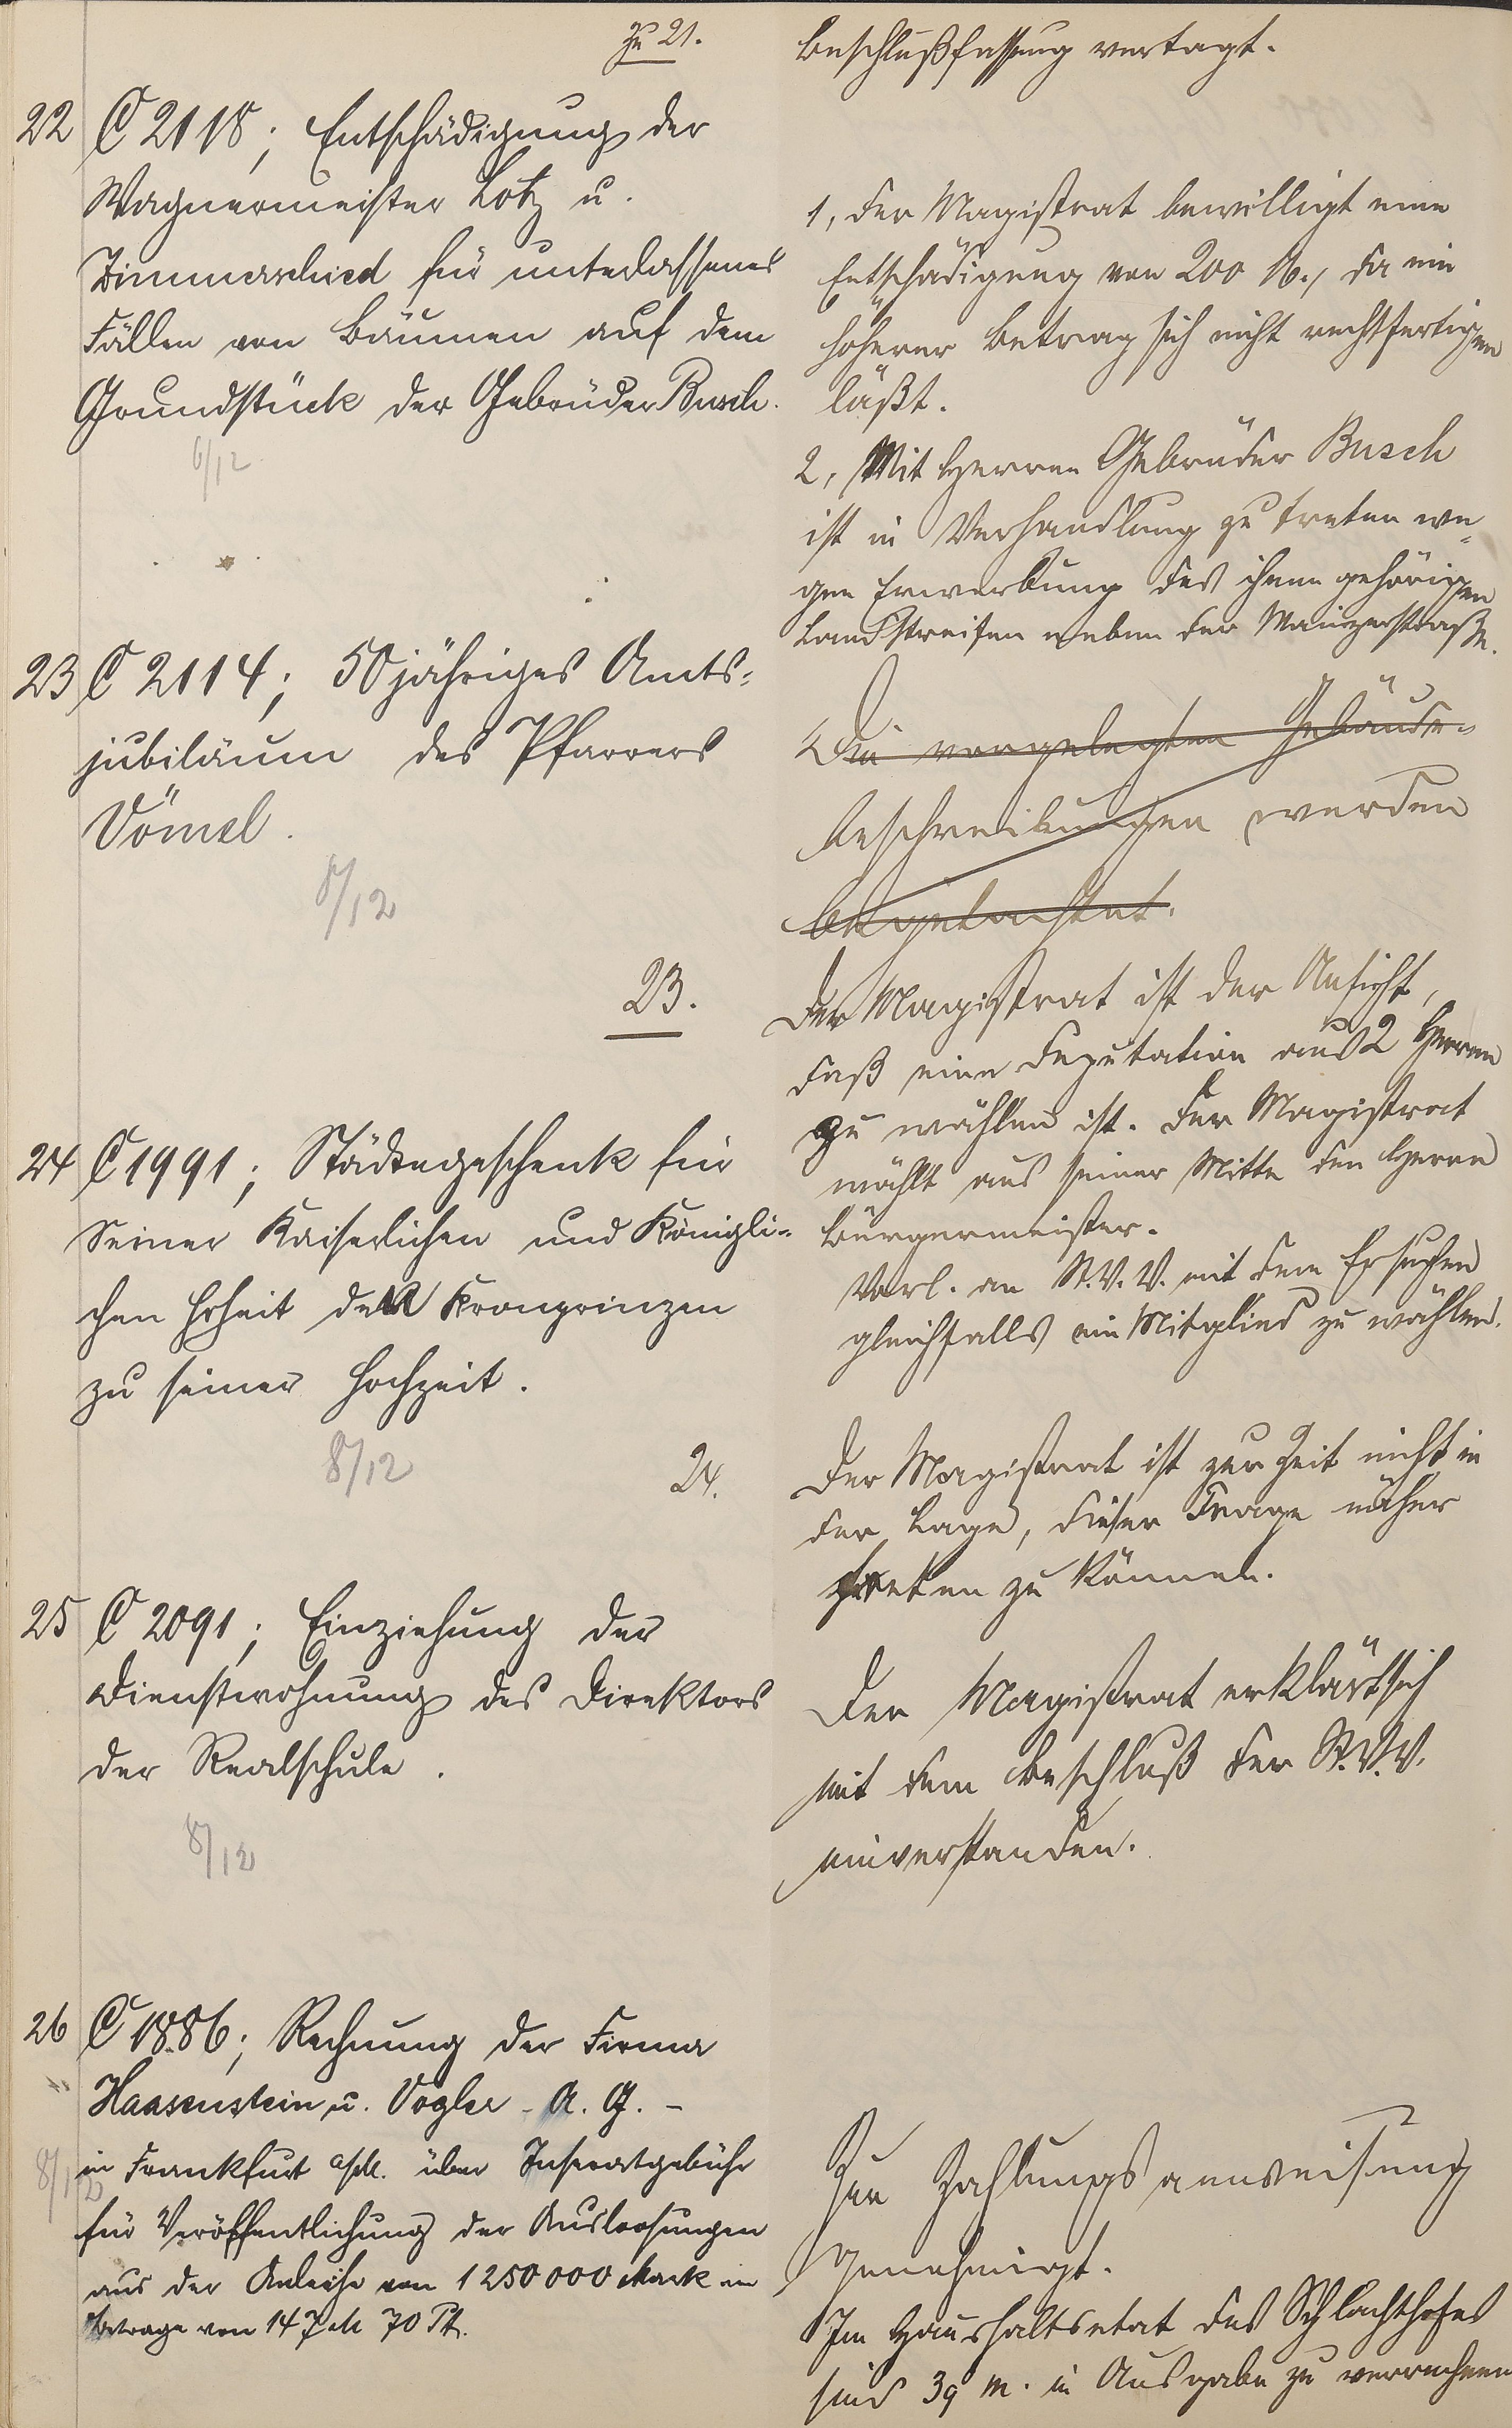 zu 21.
Beschlußfassung vertagt.
22 C 2118; Entschädigung der
Wagnermeister Lotz u.
Zimmerschied für unterlassenes
Fällen von Bäumen auf dem
Grundstück der Gebrüder Busch.
6/12
1, Der Magistrat bewilligt eine
Entschädigung von 200 M., da ein
höherer Betrag sich nicht rechtfertigen
läßt.
2, Mit Herren Gebrüder Busch
ist in Verhandlung zu treten we-
gen Erwerbung des ihnen gehörigen
Landstreifen neben der Mainzerstraße.
23 C 2114; 50jähriges Amts-
jubiläum des Pfarrers
Vömel.
8/12
Die vorgelegten Gebäude-
beschreibungen werden
begutachtet.
23.
Der Magistrat ist der Ansicht,
daß eine Deputation aus 2 Herren
zu wählen ist. Der Magistrat
wählt aus seiner Mitte den Herrn
Bürgermeister.
Vorl. an St.V.V. mit dem Ersuchen
gleichfalls ein Mitglied zu wählen.
24 C 1991; Städtegeschenk für
Seiner Kaiserlichen und Königli-
chen Hoheit den Kronprinzen
zu seiner Hochzeit.
8/12
24.
Der Magistrat ist zur Zeit nicht in
der Lage, dieser Frage näher
treten zu können.
25 C 2091; Einziehung der
Dienstwohnung des Direktors
der Realschule.
8/12
Der Magistrat erklärt sich
mit dem Beschluß der St.V.V.
einverstanden.
26 C 1886; Rechnung der Firma
Haasenstein u. Vogler - A. G. -
in Frankfurt a/M. über Inseratgebühr
für Veröffentlichung der Auslosungen
aus der Anleihe von 1250000 Mark im
Betrage von 147 M 70 Pf.
8/12
Zur Zahlungsanweisung
genehmigt.
Im Haushaltsetat des Schlachthofes
sind 39 M. in Ausgabe zu verrechnen